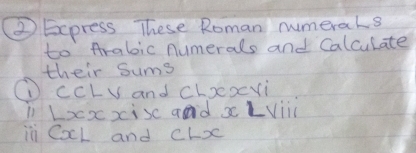 ② Express These Roman numerals
to Arabic numerals and Calculate
their Sums
① CCLV and CLxxvi
ii Lxxxxix and xLviii
iii CxL and CLx